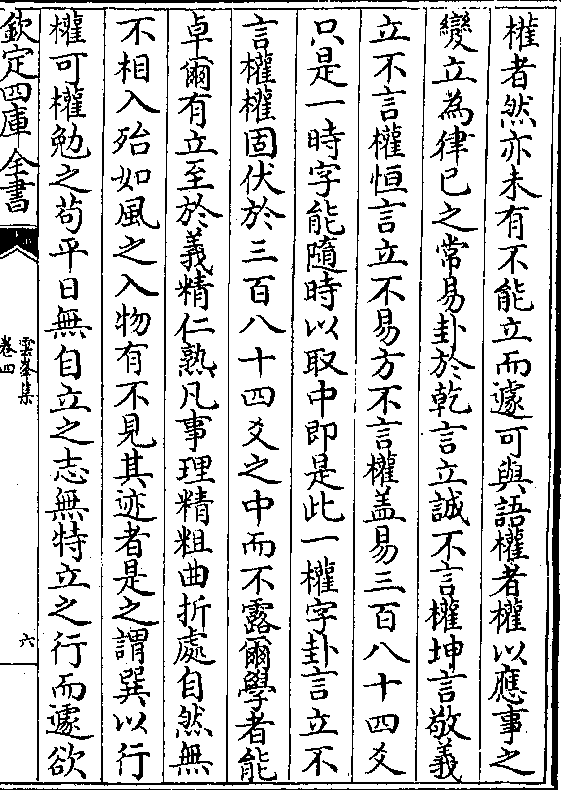 權者然亦未有不能立而遽可與語權者權以應事之
變立為律已之常易卦於乾言立誠不言權坤言敬義
立不言權恒言立不易方不言權盖易三百八十四爻
只是一時字能隨時以取中即是此一權字卦言立不
言權權固伏於三百八十四爻之中而不露爾學者能
卓爾有立至於義精仁熟凡事理精粗曲折處自然無
不相入殆如風之入物有不見其迹者是之謂巽以行
權可權勉之苟平日無自立之志無特立之行而遽欲
欽定四庫全書
雲峯集
卷四
六